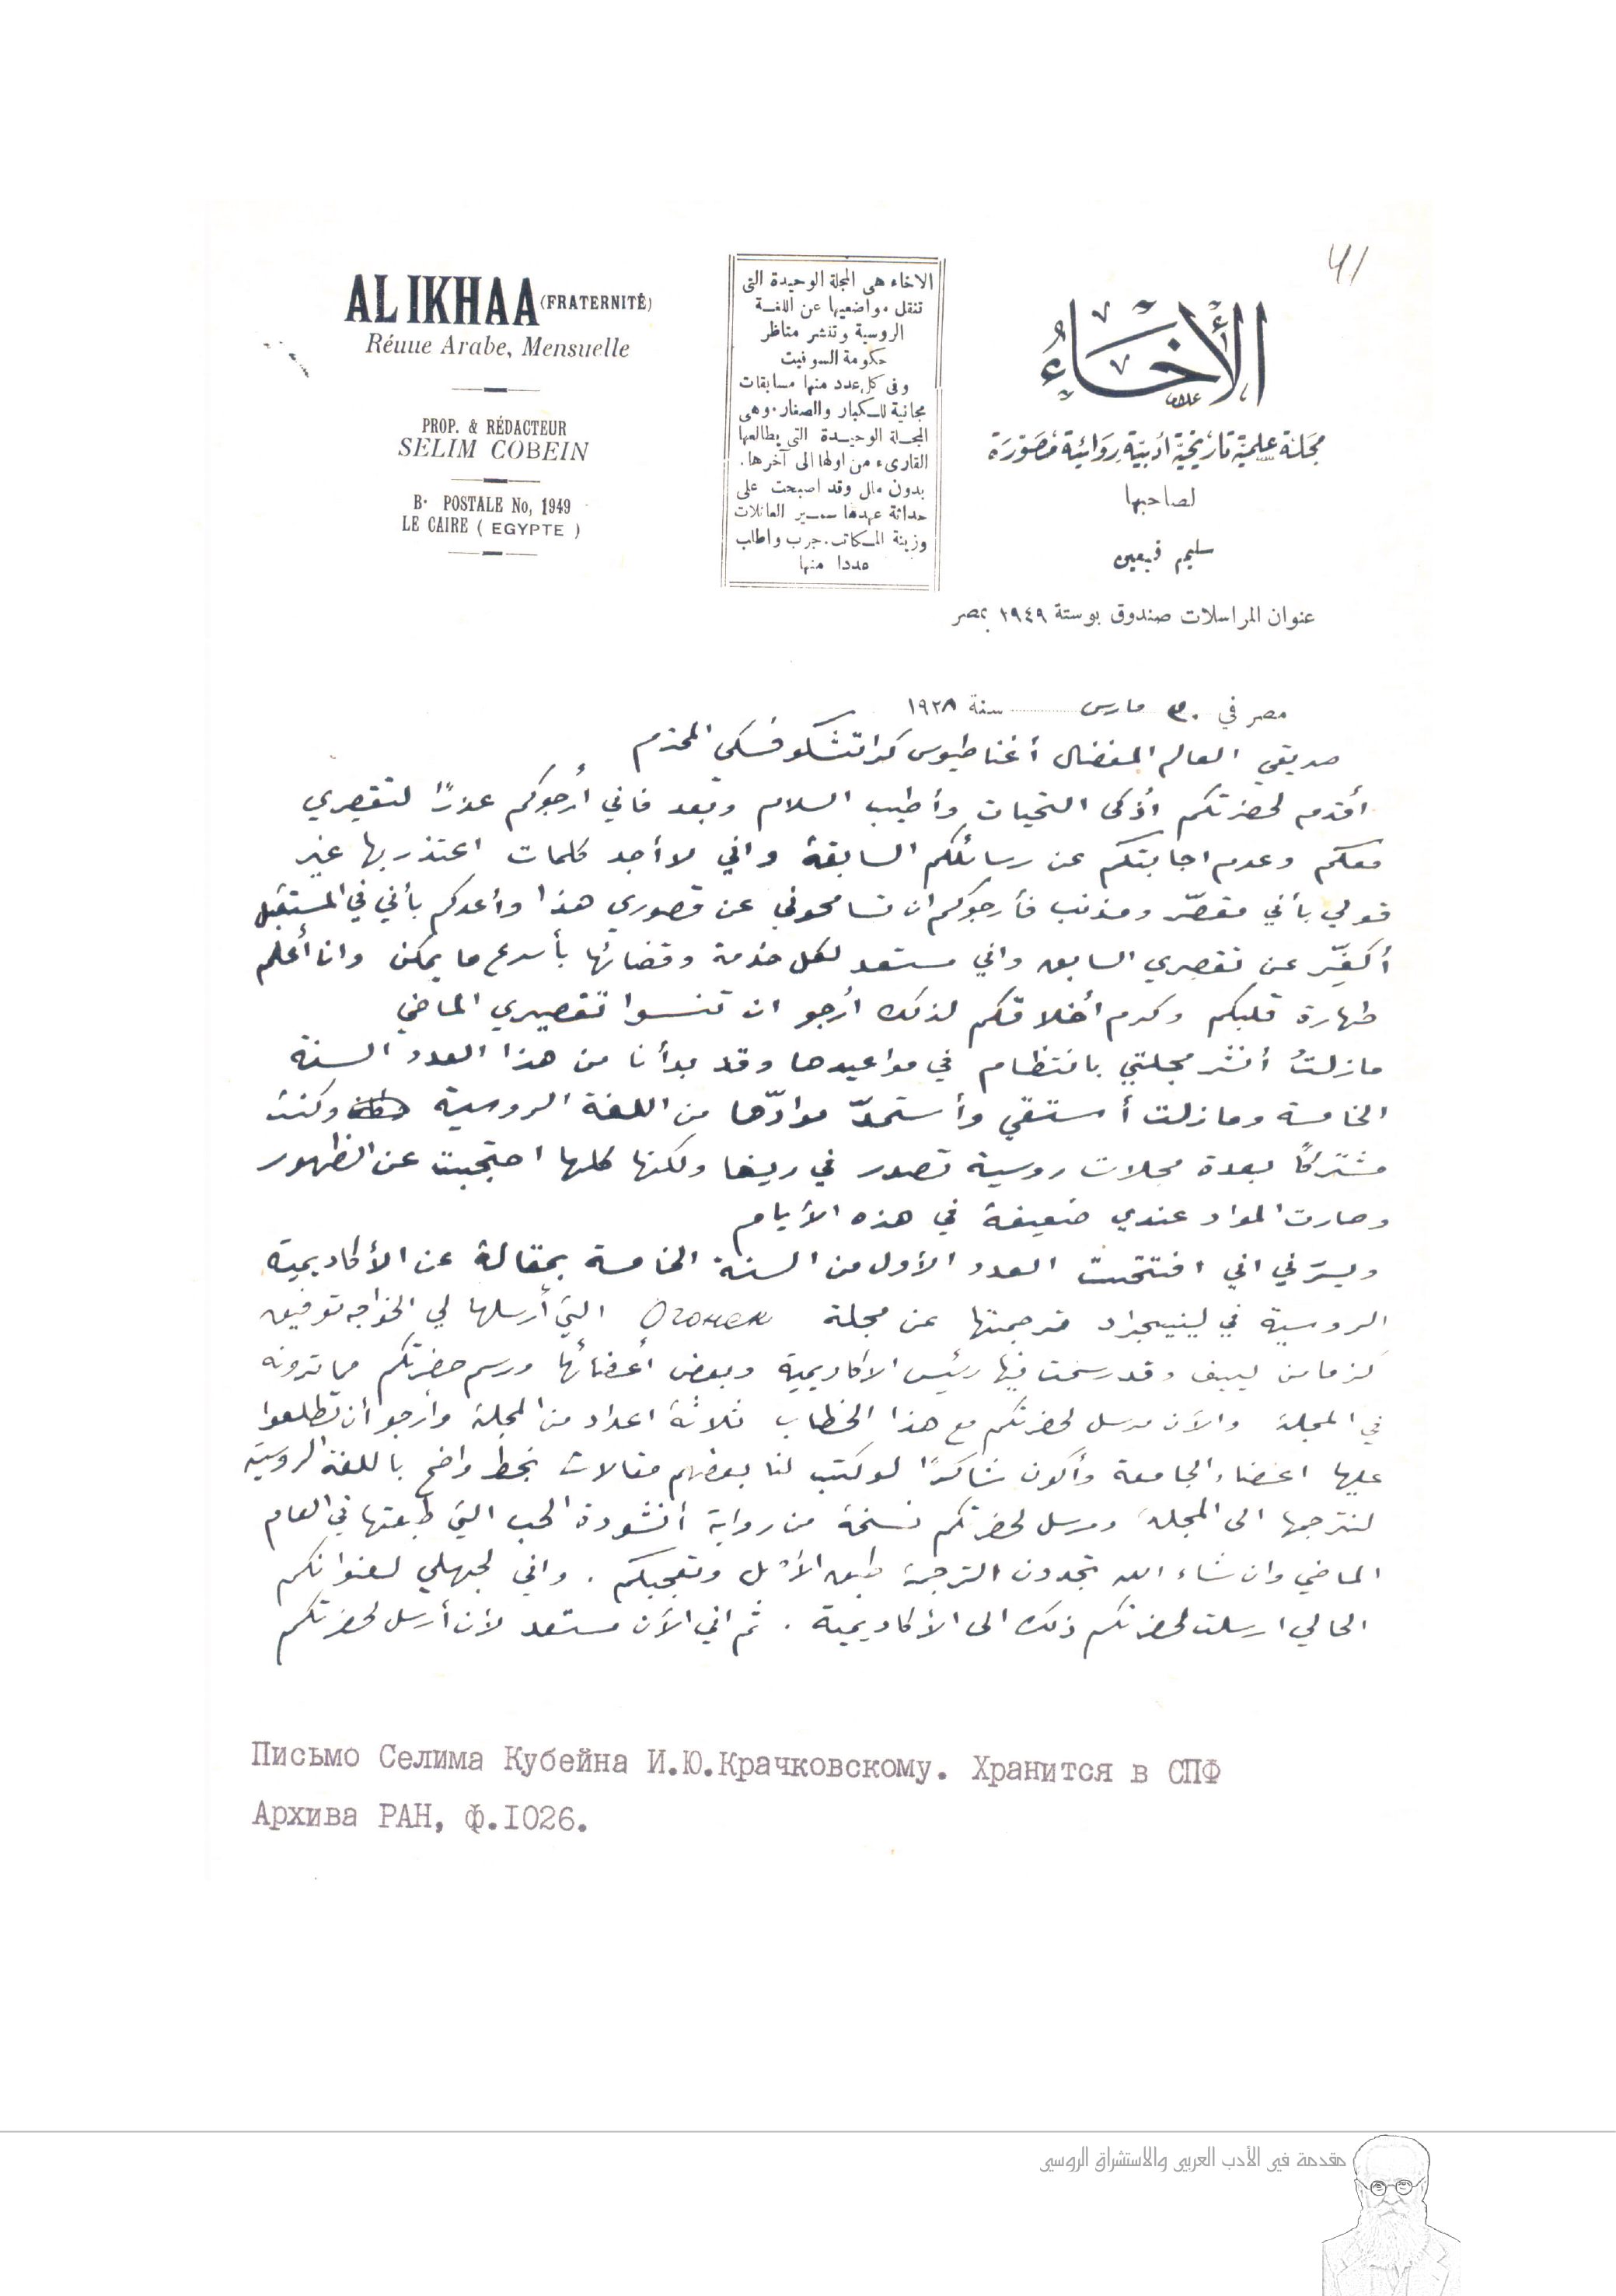 41
AL IKHAA (FRATERNITÉ)
Réuue Arabe, Mensuelle
PROP. & RÉDACTEUR
SELIM COBEIN
B· POSTALE No, 1949
LE CAIRE ( EGYPTE )
الاخاء هى المجلة الوحيدة التى
تنقل مواضعيها عن اللغة
الروسية وتنشر مناظر
حكومة السوفيت
وفى كل عدد منها مسابقات
مجانية للكبار والصغار. وهى
المجلة الوحيدة التى يطالعها
القارىء من اولها الى آخرها.
بدون مال وقد اصبحت على
حداثة عهدها سمير العائلات
وزينة المكاتب. جرب واطلب
عددا منها
الأخاء
مجلة علمية تاريخية أدبية روائية مصورة
لصاحبها
سليم قبعين
عنوان المراسلات صندوق بوستة ١٩٤٩ بمصر
مصر في ٣٠ مارس سنة ١٩٢٨
صديقي العالم المفضال أغناطيوس كراتشكوفسكي المحترم
أقدم لحضرتكم أذكى التحيات وأطيب السلام وبعد فاني أرجوكم عذرًا لتقصيري
معكم وعدم اجابتكم عن رسائلكم السابقة واني لا أجد كلمات اعتذر بها غير
قولي بأني مقصّر ومذنب فأرجوكم ان تسامحوني عن قصوري هذا وأعدكم بأني في المستقبل
أكفّر عن تقصيري السابق واني مستعد لكل خدمة وقضائها بأسرع ما يمكن وانا أعلم
طهارة قلبكم وكرم أخلاقكم لذلك أرجو ان تنسوا تقصيري الماضي
مازلتُ أنشر مجلتي بانتظام في مواعيدها وقد بدأنا من هذا العدد السنة
الخامسة ومازلت أستقي وأستمدّ موادّها من اللغة الروسية وكنت
مشتركًا بعدة مجلات روسية تصدر في ريغا ولكنها كلها احتجبت عن الظهور
وصارت المواد عندي ضعيفة في هذه الأيام
ويسرّني اني افتتحت العدد الأول من السنة الخامسة بمقالة عن الأكاديمية
الروسية في لينيجراد ترجمتها عن مجلة Огонек التي أرسلها لي الخواجه توفيق
كزما من كييف وقد رسمت فيها رئيس الاكاديمية وبعض أعضائها ورسم حضرتكم مما ترونه
في المجلة والآن مرسل لحضرتكم مع هذا الخطاب ثلاثة اعداد من المجلة وأرجو أن تطلعوا
عليها اعضاء الجامعة وأكون شاكرًا لو كتب لنا بعضهم مقالات بخط واضح باللغة الروسية
لنترجمها الى المجلة ومرسل لحضرتكم نسخة من رواية أنشودة الحب التي طبعتها في العام
الماضي وان شاء الله تجدون الترجمة طبق الأصل وتعجبكم. واني لجهلي لعنوانكم
الحالي ارسلت لحضرتكم ذلك الى الأكاديمية. ثم اني الآن مستعد لأن أرسل لحضرتكم
Письмо Селима Кубейна И.Ю.Крачковскому. Хранится в СПФ
Архива РАН, ф.1026.
مقدمة في الأدب العربي والاستشراق الروسي